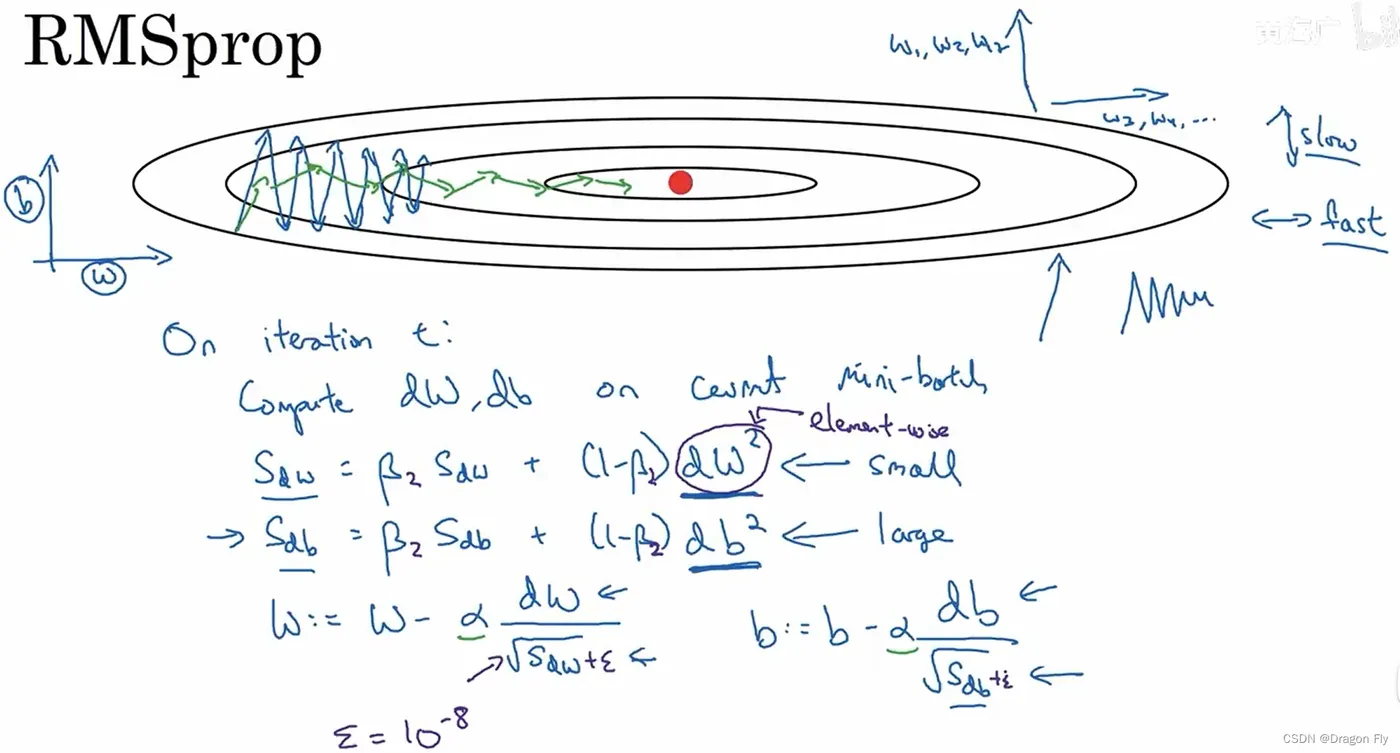 RMSprop
黄海广
w₁, w₂, w₁₇
w₃, w₄, ...
slow
fast
b
w
On iteration t:
Compute dW, db on current mini-batch
element-wise
S_dw = β₂ S_dw + (1-β₂) dW² ← small
→ S_db = β₂ S_db + (1-β₂) db² ← large
W := W - α dW / √S_dw + ε ←
b := b - α db / √S_db + ε ←
ε = 10⁻⁸
CSDN @Dragon Fly